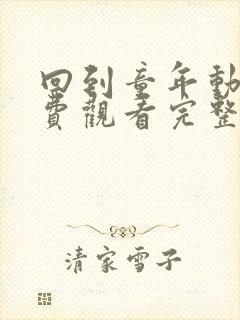 回到童年動
費觀看完整
清家雪子